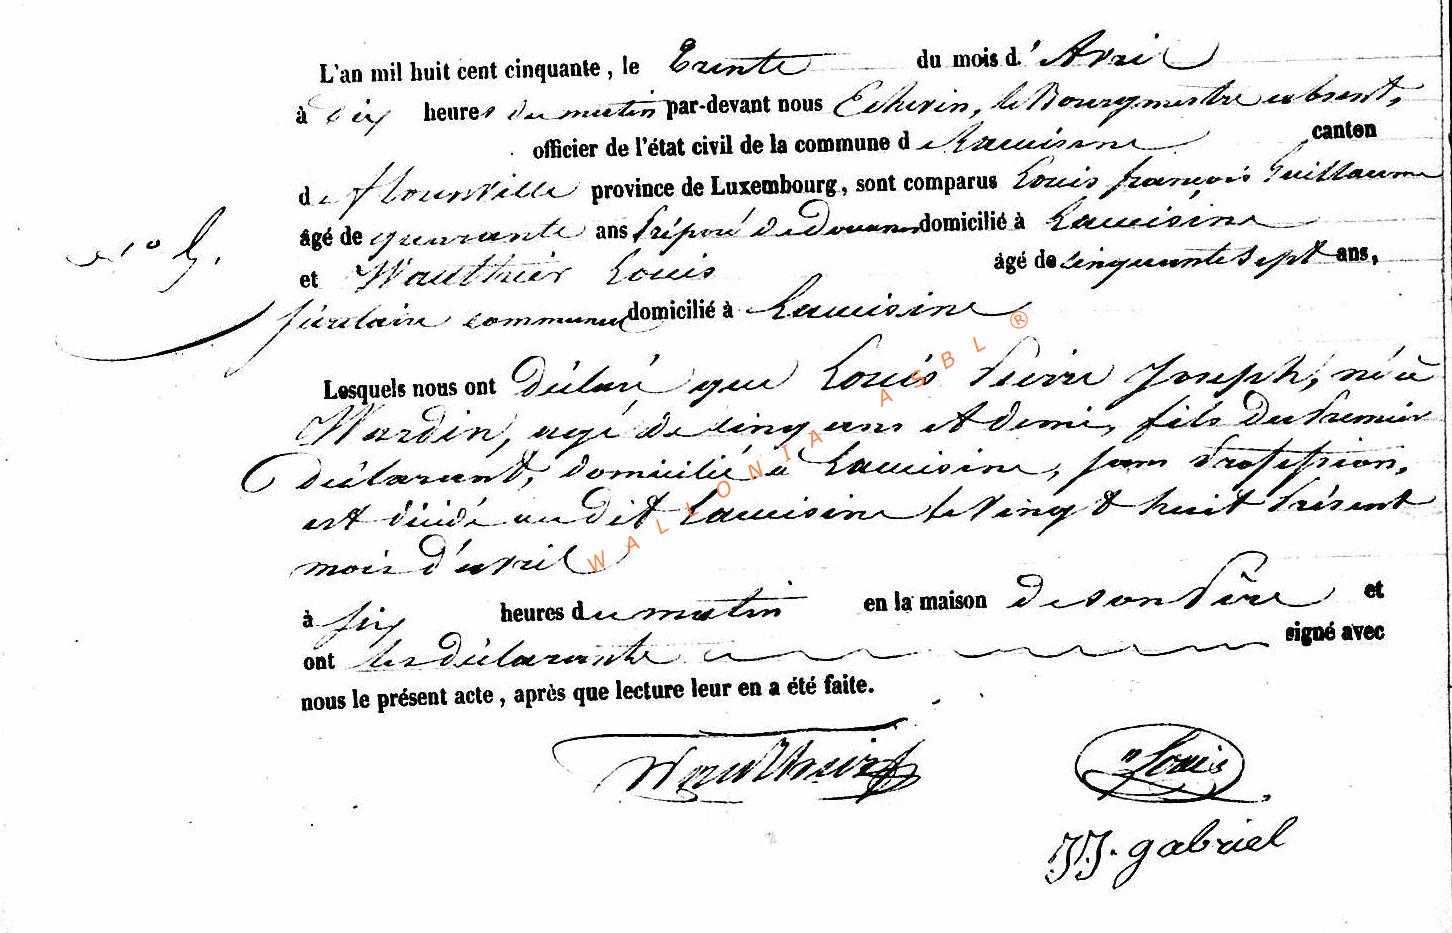 L'an mil huit cent cinquante, le trente du mois d'Avril
à dix heures du matin par-devant nous Echevin, le Bourgmestre absent,
officier de l'état civil de la commune de Lacuisine canton
de Florenville province de Luxembourg, sont comparus Louis françois Guillaume
âgé de quarante ans Préposé de Douanes domicilié à Lacuisine
N° 5.
et Wauthier Louis âgé de cinquante sept ans,
secrétaire communal domicilié à Lacuisine
Lesquels nous ont déclaré que Louis Pierre Joseph, né à
Wardin, agé de cinq ans et demi, fils du Premier
déclarant, domicilié à Lacuisine, sans Profession,
est décédé au dit Lacuisine le vingt huit Présent
mois d'avril
à six heures du matin en la maison de son Père et
ont les déclarants signé avec
nous le présent acte, après que lecture leur en a été faite.
Wauthier Louis
JJ. gabriel
WALLONIA ASBL ®